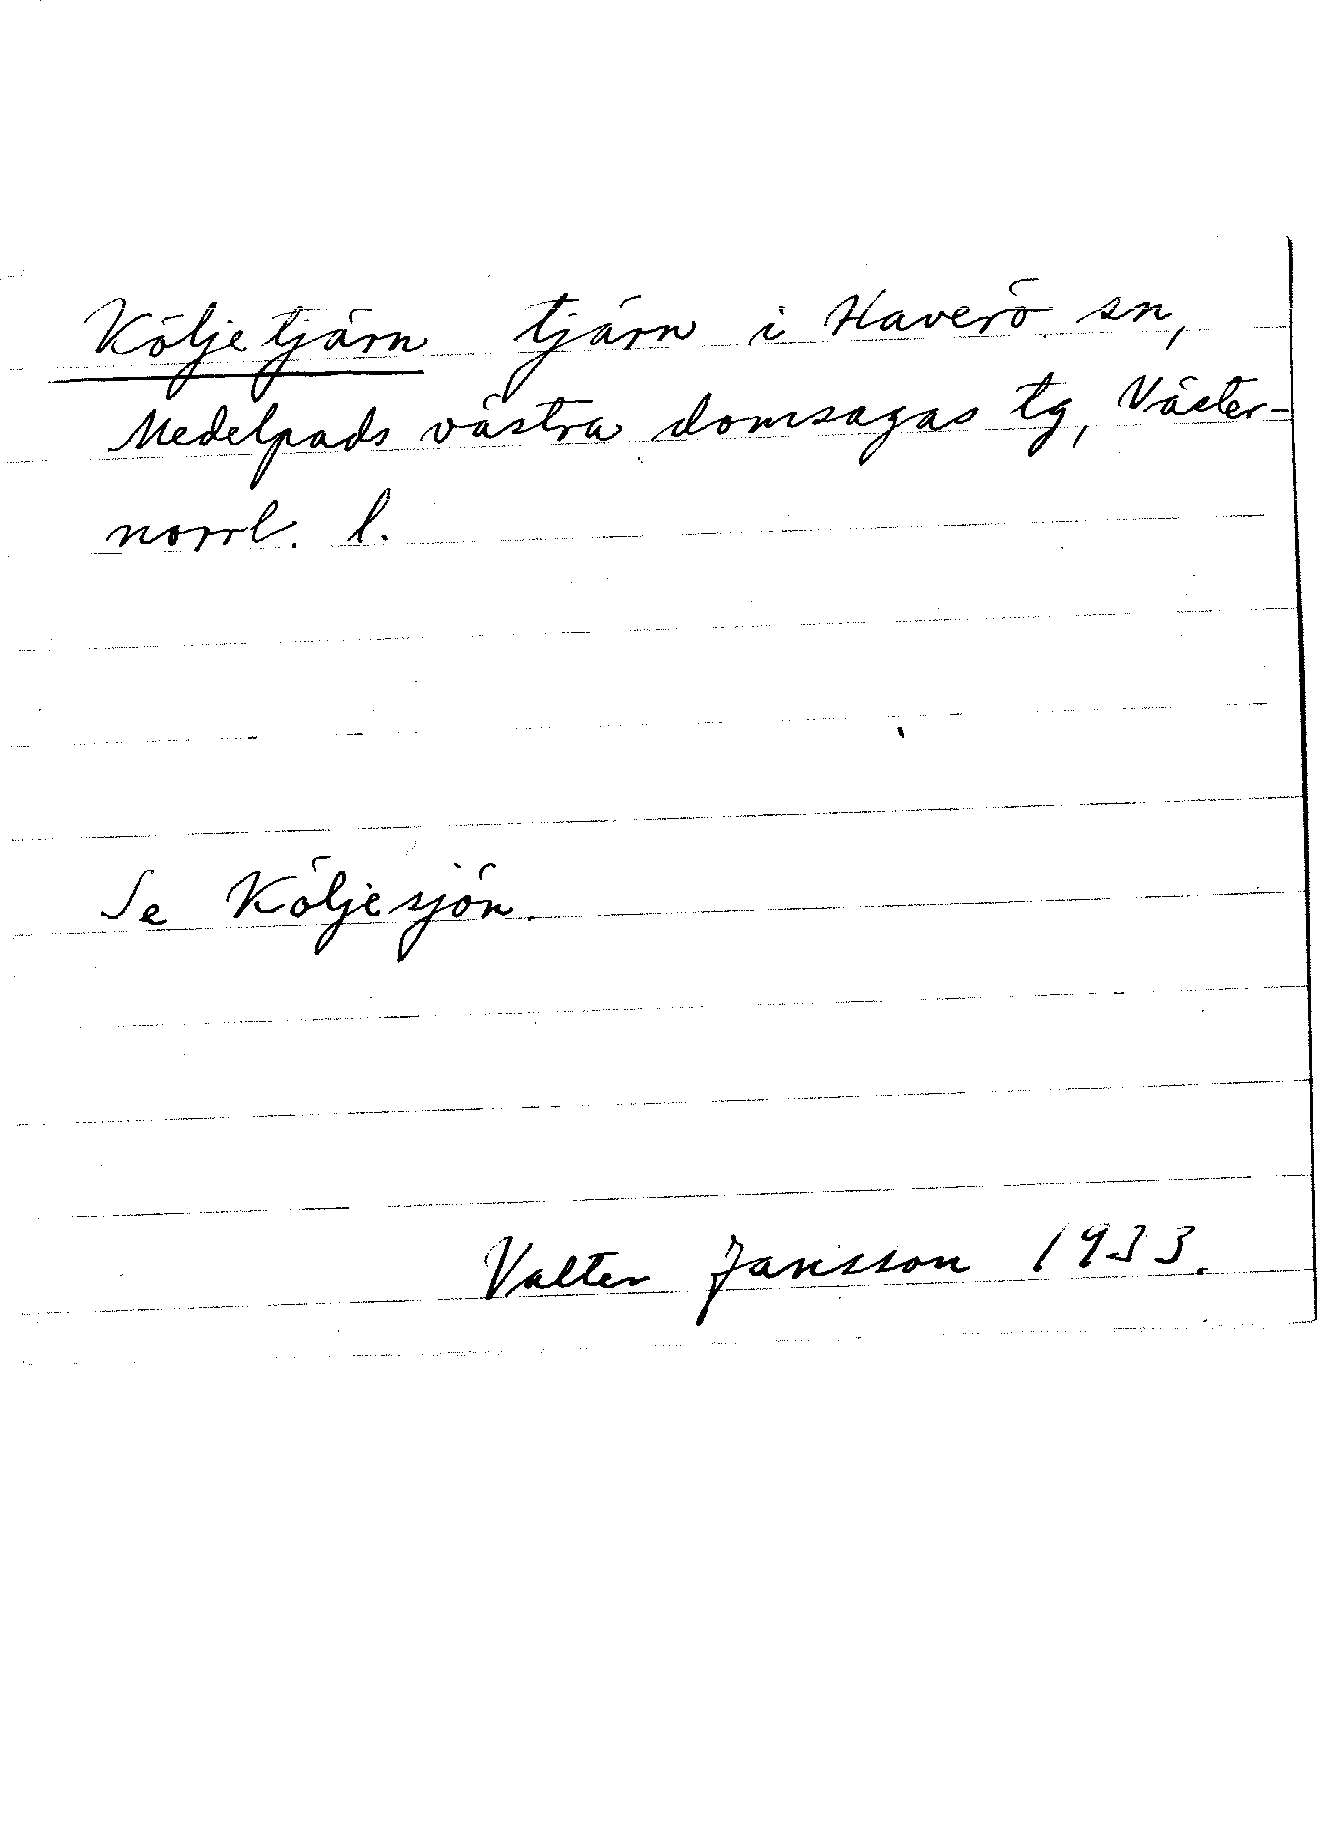 Köljetjärn tjärn i Haverö sn,
Medelpads västra domsagas tg, Väster-
norrl. l.
Se Köljesjön.
Valter Jansson 1933.